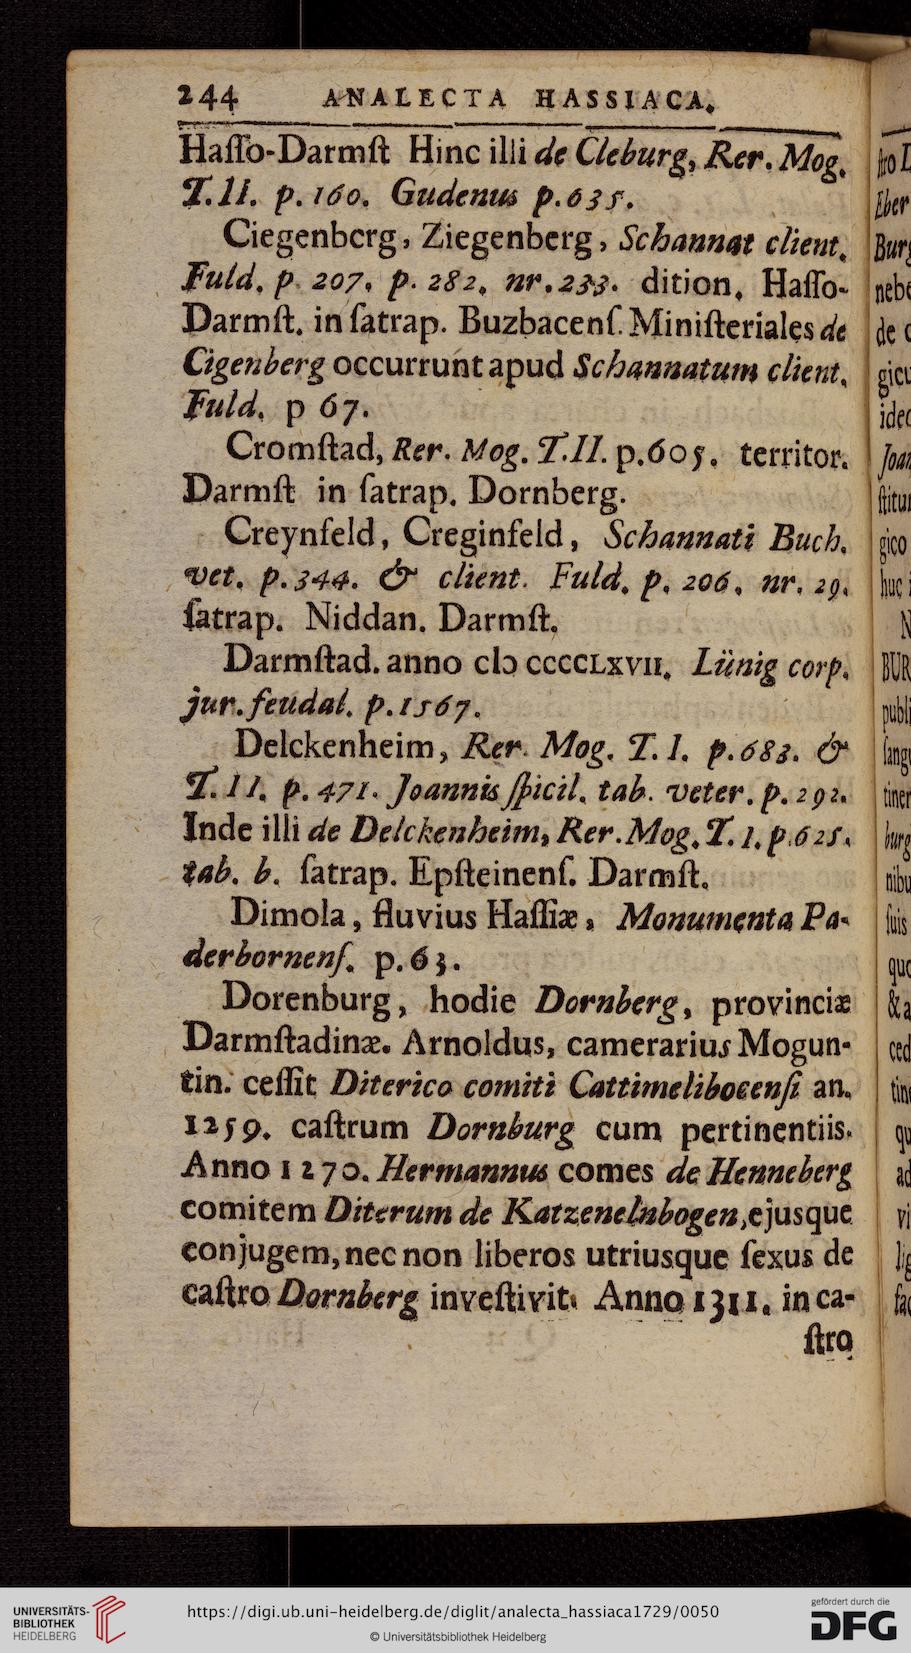 244 ANALECTA HASSIACA.
Haſſo-Darmſt Hinc illi de Cleburg, Rer. Mog.
T.II. p. 160. Gudenus p. 635.
Ciegenberg, Ziegenberg, Schannat client.
Fuld. p. 207. p. 282. nr. 233. dition. Haſſo-
Darmſt. in ſatrap. Buzbacenſ. Miniſteriales de
Cigenberg occurrunt apud Schannatum client.
Fuld. p 67.
Cromſtad, Rer. Mog. T.II. p. 605. territor.
Darmſt in ſatrap. Dornberg.
Creynfeld, Creginfeld, Schannati Buch.
vet. p. 344. & client. Fuld. p. 206. nr. 29.
ſatrap. Niddan. Darmſt.
Darmſtad. anno cIↄ ccccLxvii. Lünig corp.
jur. feudal. p. 1567.
Delckenheim, Rer. Mog. T. I. p. 683. &
T. II. p. 471. Joannis ſpicil. tab. veter. p. 292.
Inde illi de Delckenheim, Rer. Mog. T. I. p. 625.
tab. b. ſatrap. Epſteinenſ. Darmſt.
Dimola, fluvius Haſſiæ, Monumenta Pa-
derbornenſ. p. 63.
Dorenburg, hodie Dornberg, provinciæ
Darmſtadinæ. Arnoldus, camerarius Mogun-
tin. ceſſit Diterico comiti Cattimelibocenſi an.
1259. caſtrum Dornburg cum pertinentiis.
Anno 1270. Hermannus comes de Henneberg
comitem Diterum de Katzenelnbogen, ejusque
conjugem, nec non liberos utriusque ſexus de
caſtro Dornberg inveſtivit. Anno 1311. in ca-
ſtro
UNIVERSITÄTS-
BIBLIOTHEK
HEIDELBERG
https://digi.ub.uni-heidelberg.de/diglit/analecta_hassiaca1729/0050
© Universitätsbibliothek Heidelberg
gefördert durch die
DFG